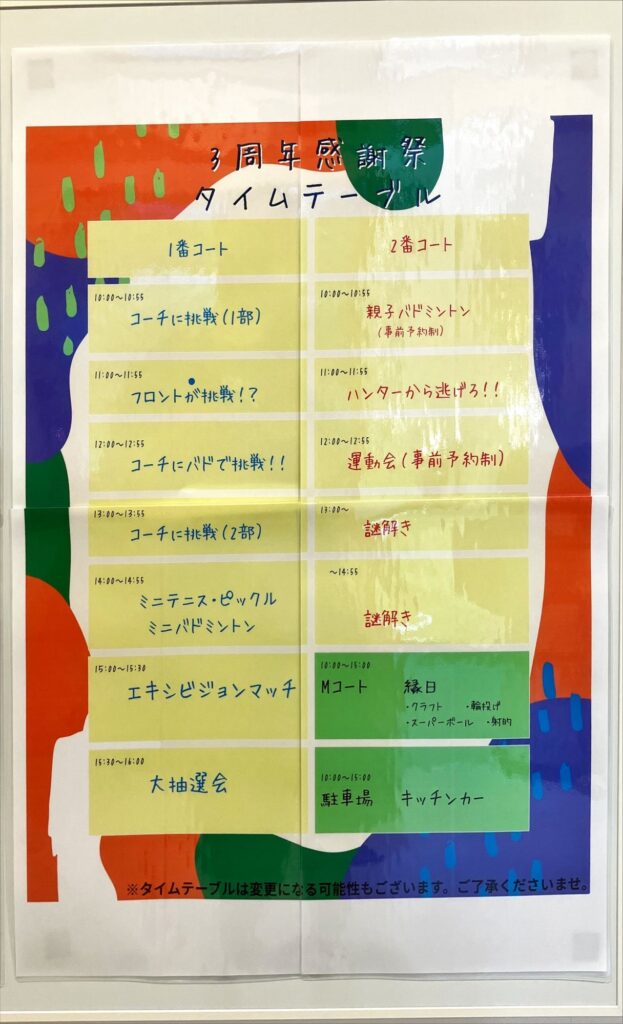 3周年感謝祭
タイムテーブル
1番コート
2番コート
10:00～10:55
コーチに挑戦(1部)
10:00～10:55
親子バドミントン
(事前予約制)
11:00～11:55
フロントが挑戦!?
11:00～11:55
ハンターから逃げろ!!
12:00～12:55
コーチにバドで挑戦!!
12:00～12:55
運動会(事前予約制)
13:00～13:55
コーチに挑戦(2部)
13:00～
謎解き
14:00～14:55
ミニテニス・ピックル
ミニバドミントン
～14:55
謎解き
15:00～15:30
エキシビジョンマッチ
10:00～15:00
Mコート 縁日
・クラフト ・輪投げ
・スーパーボール ・射的
15:30～16:00
大抽選会
10:00～15:00
駐車場 キッチンカー
※タイムテーブルは変更になる可能性もございます。ご了承くださいませ。